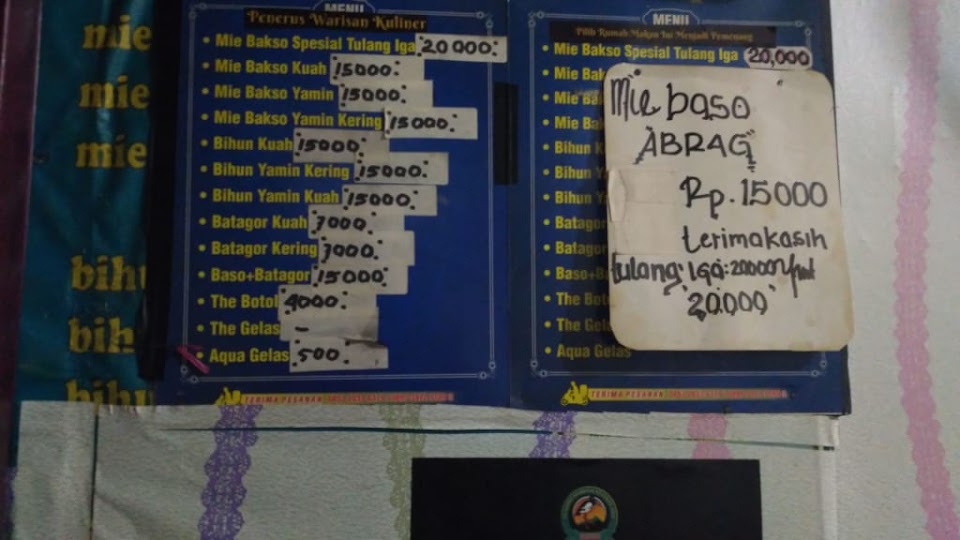 mie
mie
mie
bihu
bih
bihu
MENU
Penerus Warisan Kuliner
• Mie Bakso Spesial Tulang Iga 20 000:
• Mie Bakso Kuah 15000:
• Mie Bakso Yamin 15000:
• Mie Bakso Yamin Kering 15000:
• Bihun Kuah 15000:
• Bihun Yamin Kering 15000:
• Bihun Yamin Kuah 15000:
• Batagor Kuah 7000:
• Batagor Kering 7000:
• Baso+Batagor 15000:
• The Botol 4000:
• The Gelas -
• Aqua Gelas 500:
TERIMA PESANAN
MENU
Pilih Rumah Makan Ini Menjadi Pemenang
• Mie Bakso Spesial Tulang Iga 20,000
• Mie Bak
• Mie Ba
• Mie Ba
• Bihun K
• Bihun Y
• Bihun Y
• Batagor
• Batago
• Baso+B
• The Bo
• The Gela
• Aqua Gelas
TERIMA PESANAN
Mie baso
ABRAG
Rp. 15000
terimakasih
tulang IGA:
"20.000"